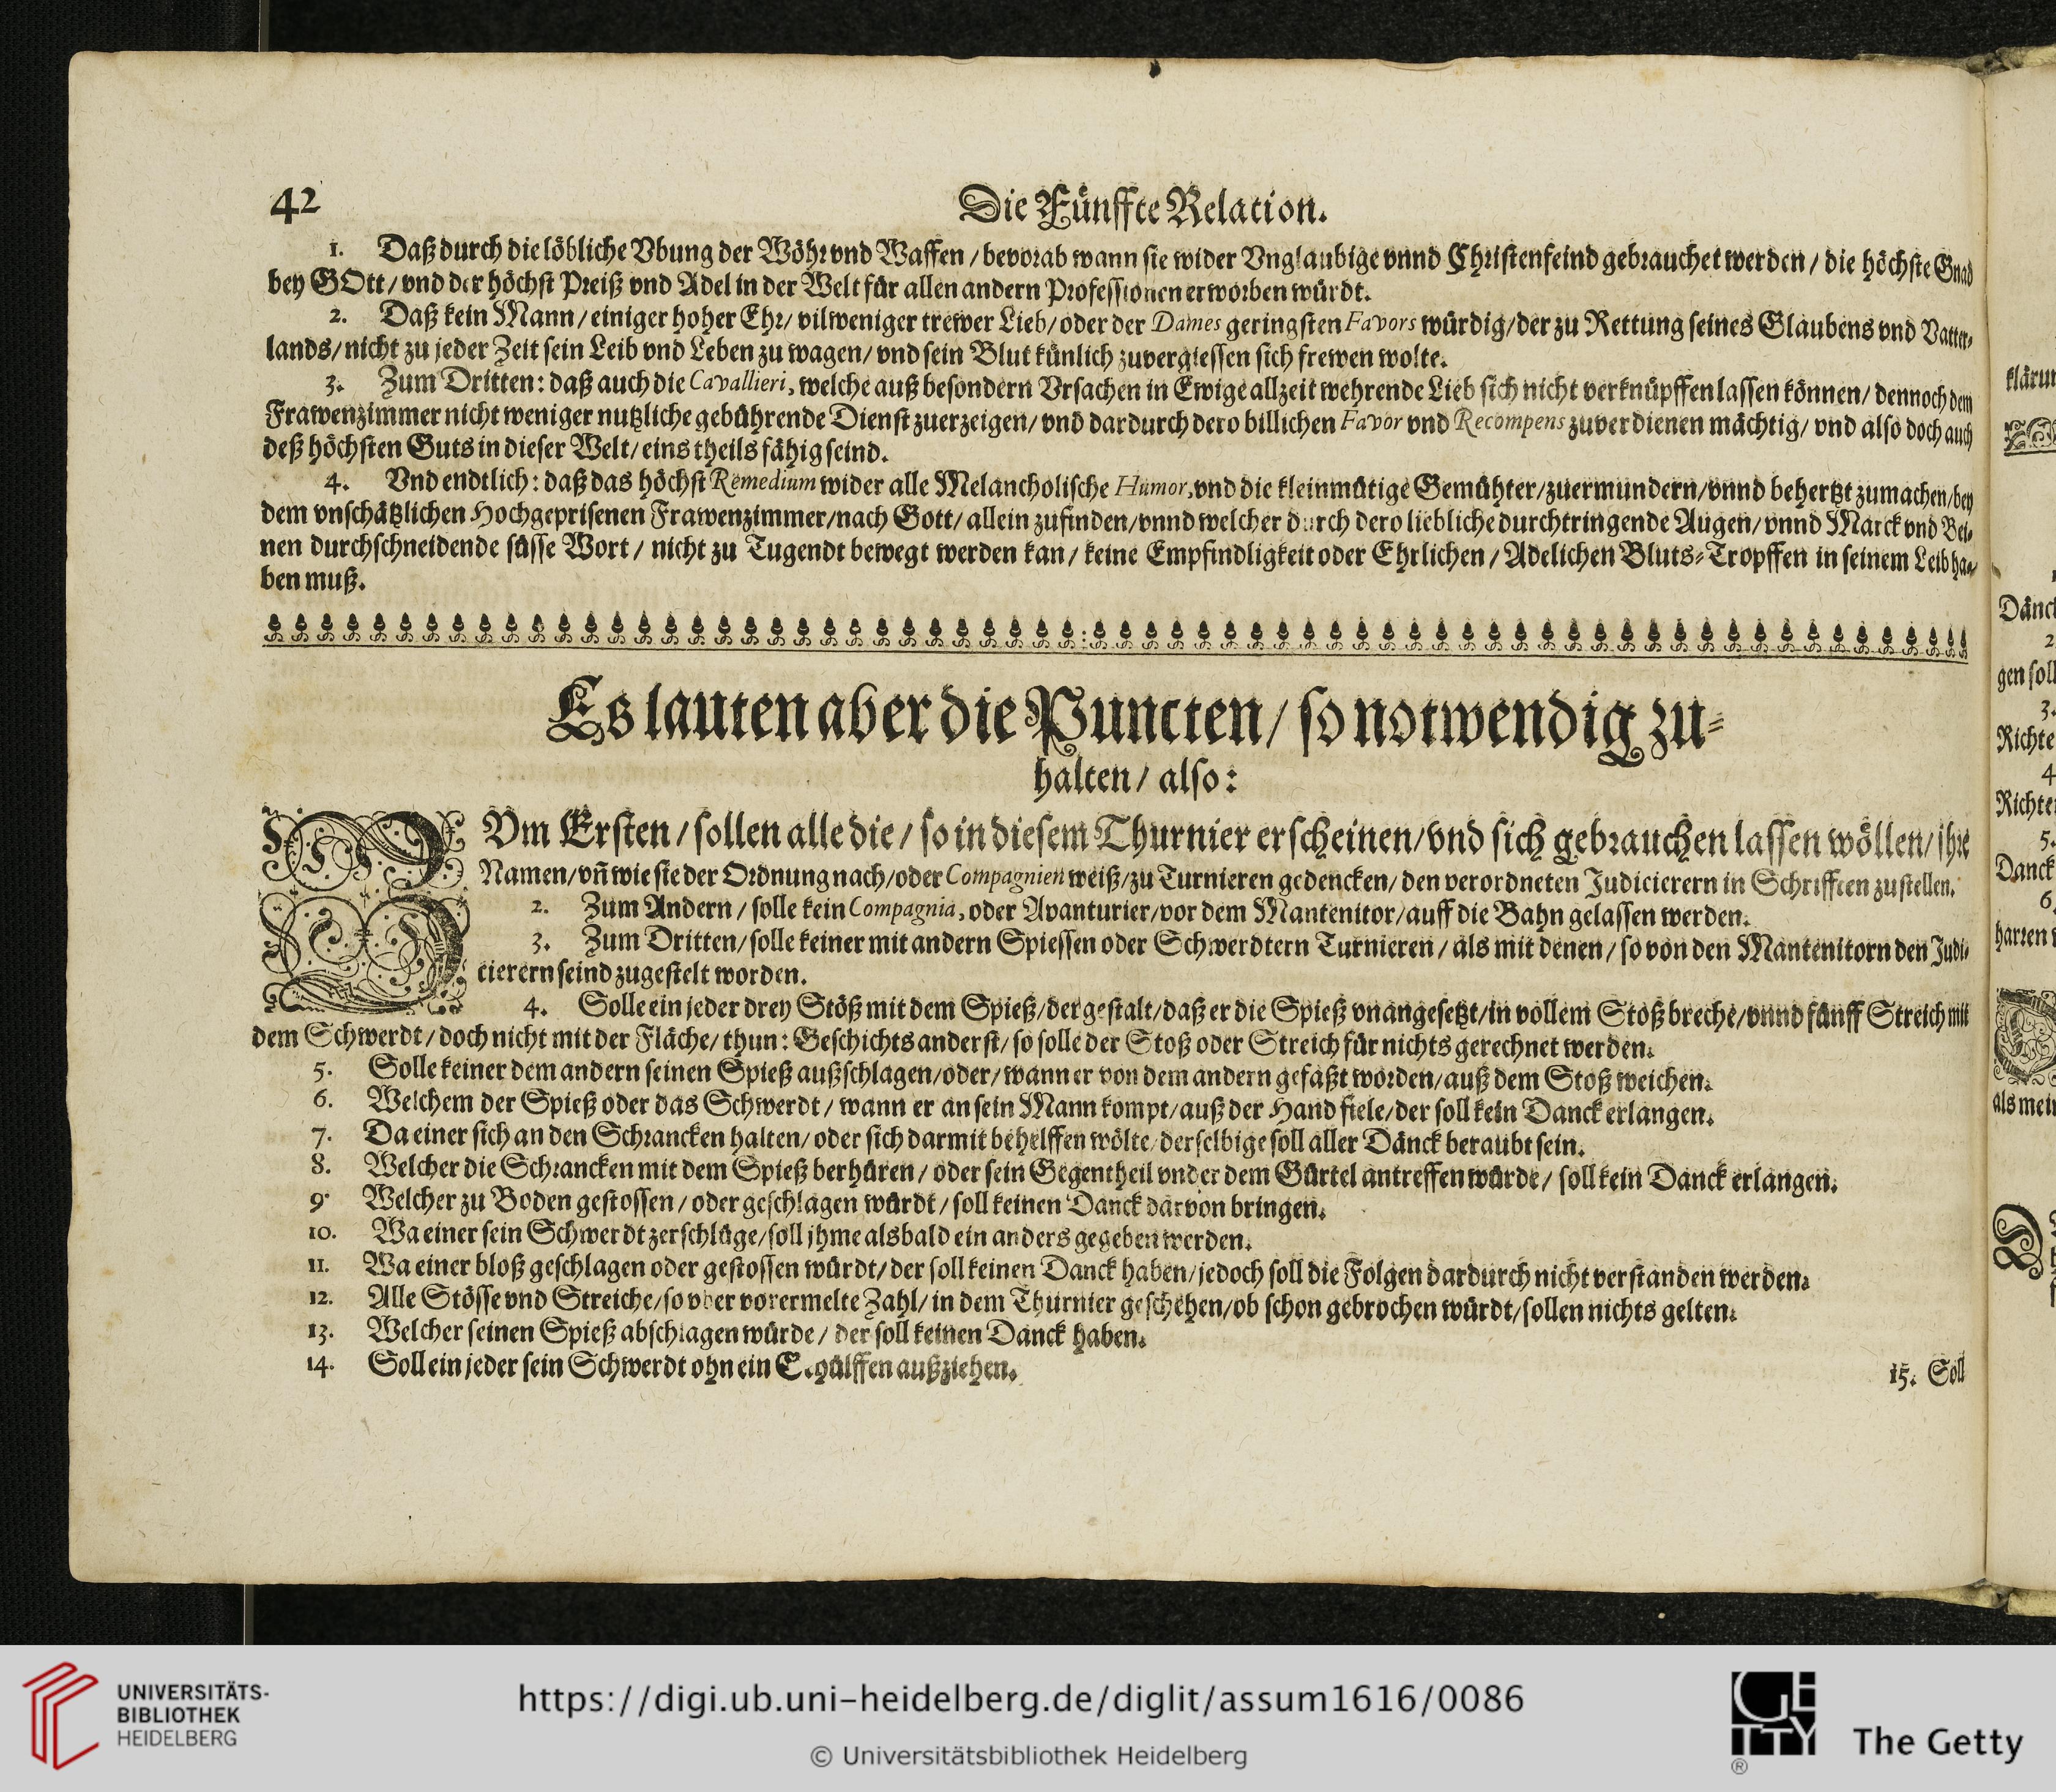 42
Die Fünffte Relation.
1. Daß durch die löbliche Vbung der Wöhr vnd Waffen / bevorab wann sie wider Vnglaubige vnnd Christenfeind gebrauchet werden / die höchste Gnad
bey GOtt / vnd der höchst Preiß vnd Adel in der Welt für allen andern Professionen erworben würdt.
2. Daß kein Mann / einiger hoher Ehr / vilweniger trewer Lieb / oder der Dames geringsten Favors würdig / der zu Rettung seines Glaubens vnd Vatter-
lands / nicht zu jeder Zeit sein Leib vnd Leben zu wagen / vnd sein Blut künlich zuvergiessen sich frewen wolte.
3. Zum Dritten: daß auch die Cavallieri, welche auß besondern Vrsachen in Ewige allzeit wehrende Lieb sich nicht verknüpffen lassen können / dennoch dem
Frawenzimmer nicht weniger nutzliche gebührende Dienst zuerzeigen / vnd dardurch dero billichen Favor vnd Recompens zuverdienen mächtig / vnd also doch auch
deß höchsten Guts in dieser Welt / eins theils fähig seind.
4. Vnd endtlich: daß das höchst Remedium wider alle Melancholische Humor, vnd die kleinmütige Gemühter / zuermundern / vnnd behertzt zumachen / bey
dem vnschätzlichen Hochgeprisenen Frawenzimmer / nach Gott / allein zufinden / vnnd welcher durch dero liebliche durchtringende Augen / vnnd Marck vnd Bei-
nen durchschneidende süsse Wort / nicht zu Tugendt bewegt werden kan / keine Empfindligkeit oder Ehrlichen / Adelichen Bluts-Tropffen in seinem Leib ha-
ben muß.
Es lauten aber die Puncten / so notwendig zu-
halten / also:
ZVm Ersten / sollen alle die / so in diesem Thurnier erscheinen / vnd sich gebrauchen lassen wöllen / ihre
Namen / vñ wie sie der Ordnung nach / oder Compagnien weiß / zu Turnieren gedencken / den verordneten Judicierern in Schrifften zustellen.
2. Zum Andern / solle kein Compagnia, oder Avanturier / vor dem Mantenitor / auff die Bahn gelassen werden.
3. Zum Dritten / solle keiner mit andern Spiessen oder Schwerdtern Turnieren / als mit denen / so von den Mantenitorn den Judi-
cierern seind zugestelt worden.
4. Solle ein jeder drey Stöß mit dem Spieß / dergestalt / daß er die Spieß vnangesetzt / in vollem Stoß breche / vnnd fünff Streich mit
dem Schwerdt / doch nicht mit der Fläche / thun: Geschichts anderst / so solle der Stoß oder Streich für nichts gerechnet werden.
5. Solle keiner dem andern seinen Spieß außschlagen / oder / wann er von dem andern gefaßt worden / auß dem Stoß weichen.
6. Welchem der Spieß oder das Schwerdt / wann er an sein Mann kompt / auß der Hand fiele / der soll kein Danck erlangen.
7. Da einer sich an den Schrancken halten / oder sich darmit behelffen wölte / derselbige soll aller Dänck beraubt sein.
8. Welcher die Schrancken mit dem Spieß berhüren / oder sein Gegentheil vnder dem Gürtel antreffen würde / soll kein Danck erlangen.
9. Welcher zu Boden gestossen / oder geschlagen würdt / soll keinen Danck darvon bringen.
10. Wa einer sein Schwerdt zerschlüge / soll jhme alsbald ein anders gegeben werden.
11. Wa einer bloß geschlagen oder gestossen würdt / der soll keinen Danck haben / jedoch soll die Folgen dardurch nicht verstanden werden.
12. Alle Stösse vnd Streiche / so vber vorermelte Zahl / in dem Thurnier geschehen / ob schon gebrochen würdt / sollen nichts gelten.
13. Welcher seinen Spieß abschlagen würde / der soll keinen Danck haben.
14. Soll ein jeder sein Schwerdt ohn ein außziehen.
15. Soll
klärun
Dänck
2
gen soll
3.
Richte
4
Richter
5.
Danck
6.
harren
als mein
UNIVERSITÄTS-
BIBLIOTHEK
HEIDELBERG
https://digi.ub.uni-heidelberg.de/diglit/assum1616/0086
© Universitätsbibliothek Heidelberg
GETTY
®
The Getty